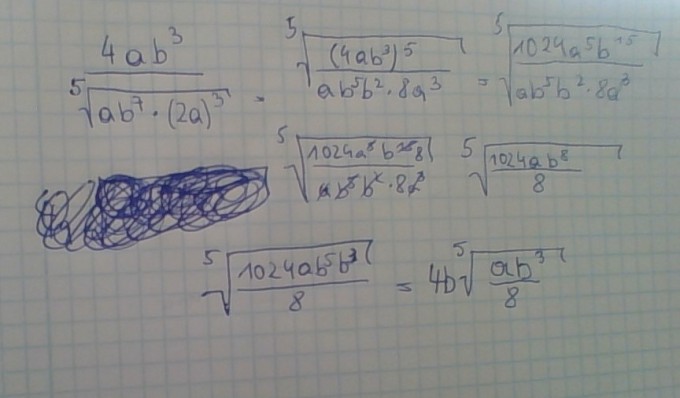 4ab³ / ⁵√(ab⁷ · (2a)³) = ⁵√((4ab³)⁵ / (ab⁵b² · 8a³)) = ⁵√(1024a⁵b¹⁵ / (ab⁵b² · 8a³))
⁵√(1024a⁵b¹⁵ 8 / (ab⁵b² · 8a³)) ⁵√(1024ab⁸ / 8)
⁵√(1024ab⁵b³ / 8) = 4b ⁵√(ab³ / 8)